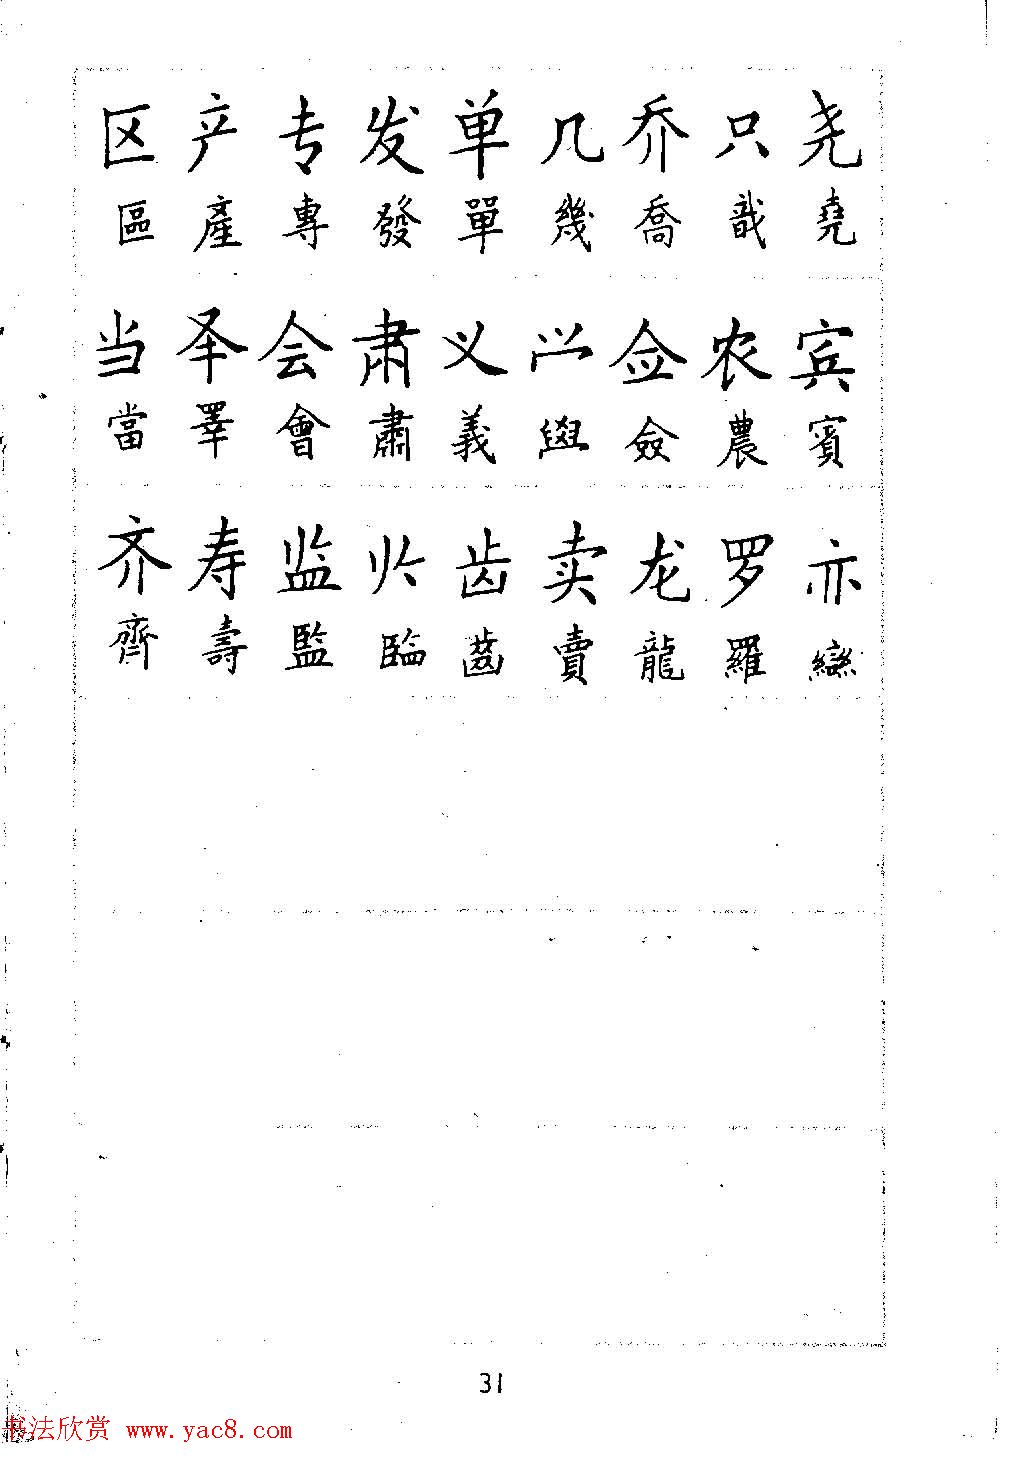 区 产 专 发 单 几 乔 只 尧
區 產 專 發 單 幾 喬 戠 堯
当 会 肃 义 佥 农 宾
當 睪 會 肅 義 僉 農 賓
齐 寿 监 齿 卖 龙 罗 亦
齊 壽 監 臨 齒 賣 龍 羅 䜌
31
书法欣赏 www.yac8.com